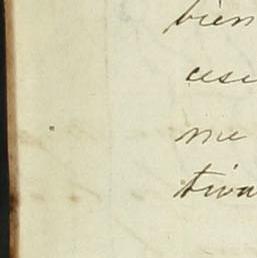 bien
cese
me
tiva